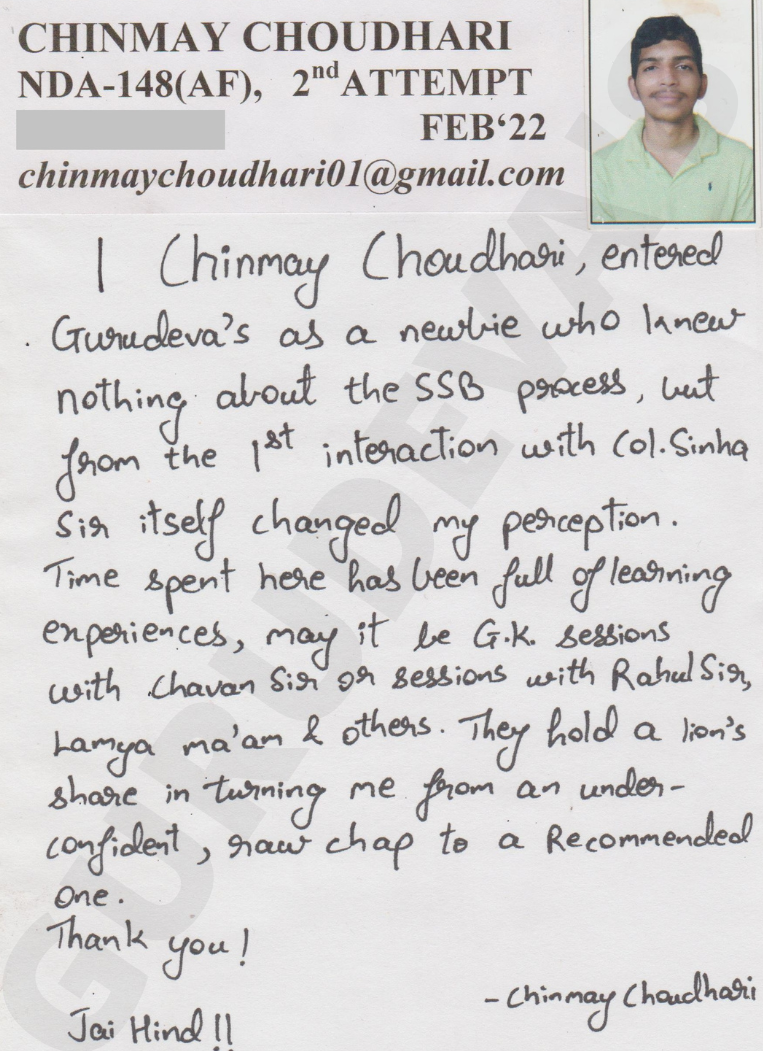 CHINMAY CHOUDHARI
NDA-148(AF), 2nd ATTEMPT
FEB‘22
chinmaychoudhari01@gmail.com
I Chinmay Choudhari, entered
Gurudeva's as a newbie who knew
nothing about the SSB process, but
from the 1st interaction with Col. Sinha
Sir itself changed my perception.
Time spent here has been full of learning
experiences, may it be G.K. sessions
with Chavan Sir or sessions with Rahul Sir,
Lamya ma'am & others. They hold a lion's
share in turning me from an under-
confident, raw chap to a Recommended
one.
Thank you!
-Chinmay Choudhari
Jai Hind!!
GURUDEVA'S